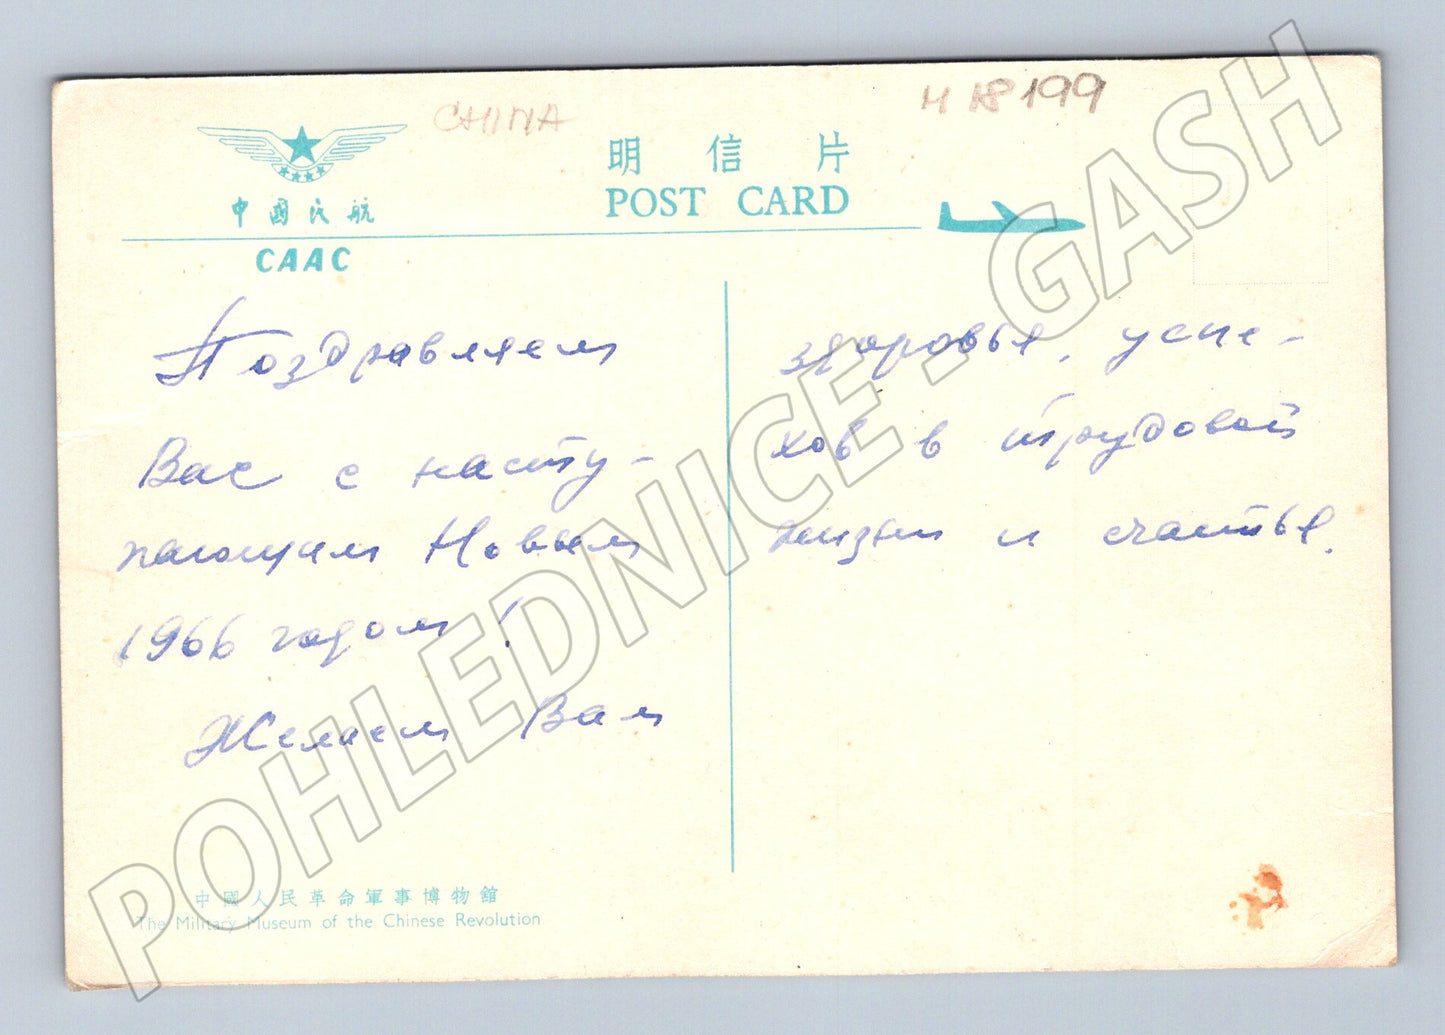 CHINA
H K8 199
中國民航
CAAC
明信片
POST CARD
Поздравляем
Вас с насту-
пающим Новым
1966 годом!
Желаем Вам
здоровья, успе-
хов в трудовой
жизни и счастья.
中國人民革命軍事博物館
The Military Museum of the Chinese Revolution
POHLEDNICE - GASH